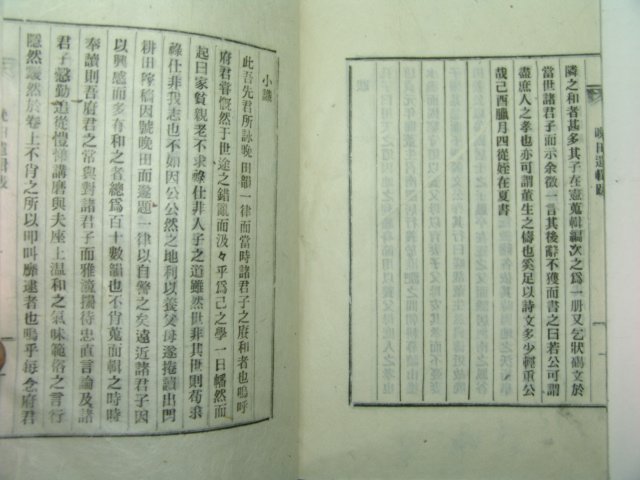 隣之和者甚多其子在憲蒐輯編次之爲一册又乞狀碣文於
當世諸君子而示余徵一言其後辭不獲而書之曰若公可謂
盡庶人之孝也亦可謂董生之儔也奚足以詩文多少輕重公
哉己酉臘月四從姪在夏書
晩田遺輯跋
小識
此吾先君所詠晩田韻一律而當時諸君子之賡和者也嗚呼
府君嘗慨然于世途之錯亂而汲々乎爲己之學一日幡然而
起曰家貧親老不求祿仕非人子之道雖然世非其世則苟浪
祿仕非我志也不如因公公然之地利以養父母遂捲讀出門
耕田稼穡因號晩田而遂題一律以自警之矣遠近諸君子因
以興感而多有和之者總爲百十數韻也不肖蒐而輯之時時
奉讀則吾府君之常與對諸君子而雅潼揣待忠直言論及諸
君子慇勤追從愷悌講磨與夫座上温和之氣味範俗之言行
隱然緩然於卷上不肖之所以叩叫靡逮者也嗚乎每念府君